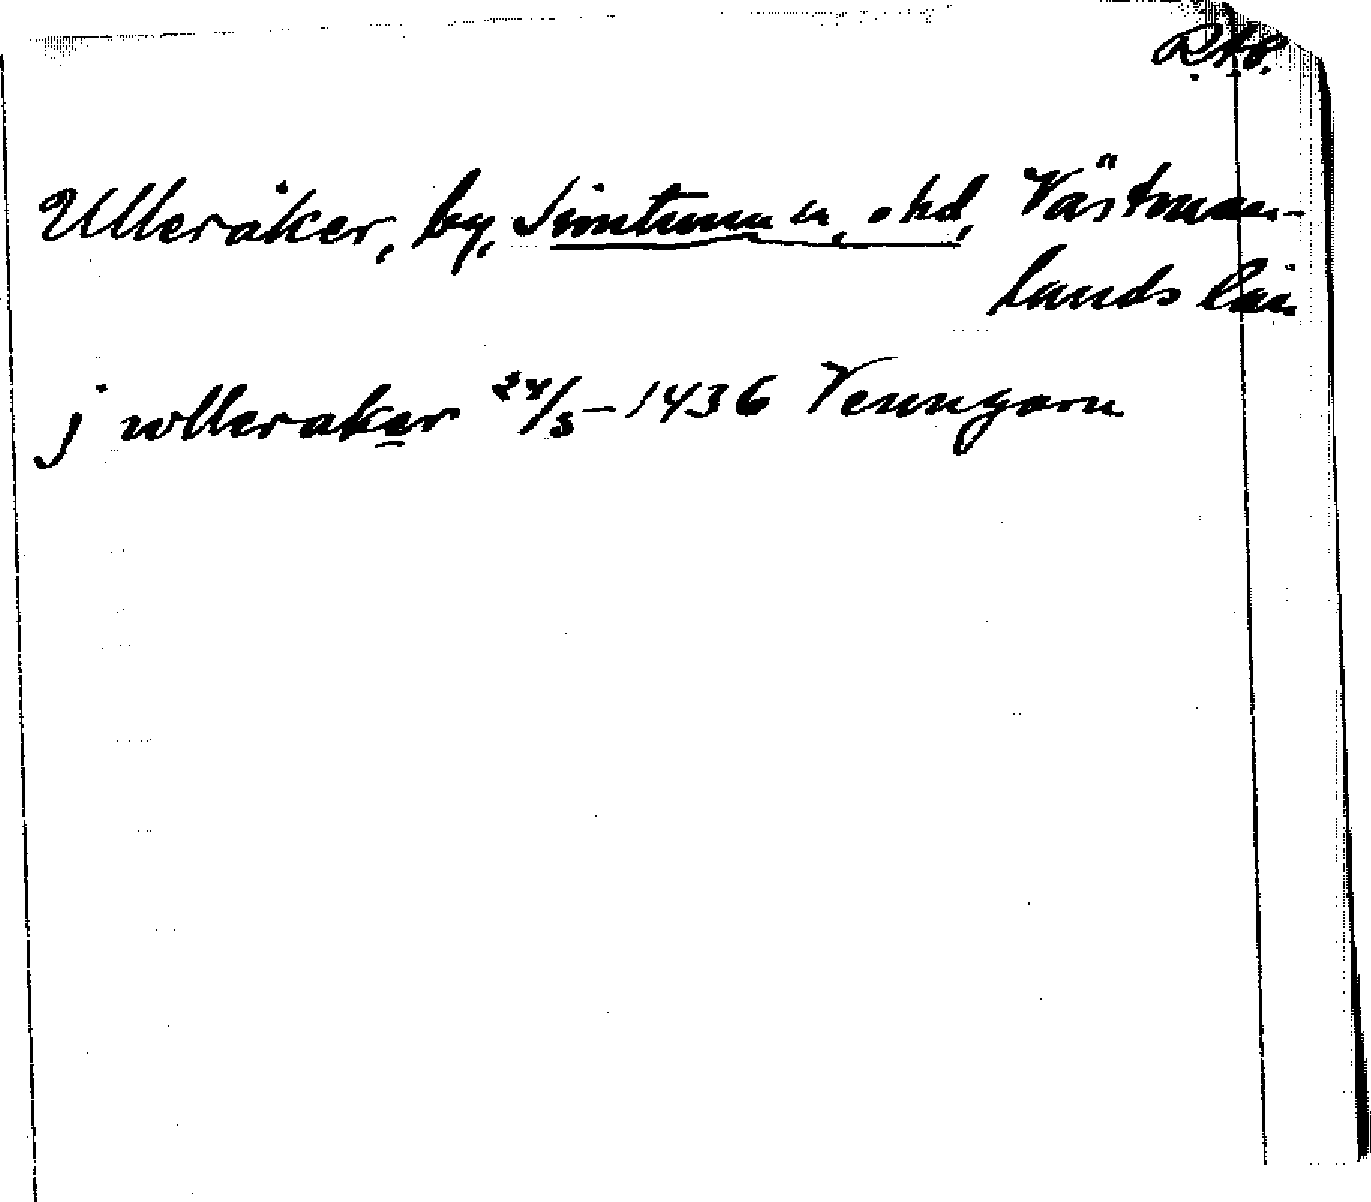 R.A.P.
Ulleråker, by, Simtuna sn, o hd, Västman-
lands län
j wlleraker 24/5-1436 Venngarn